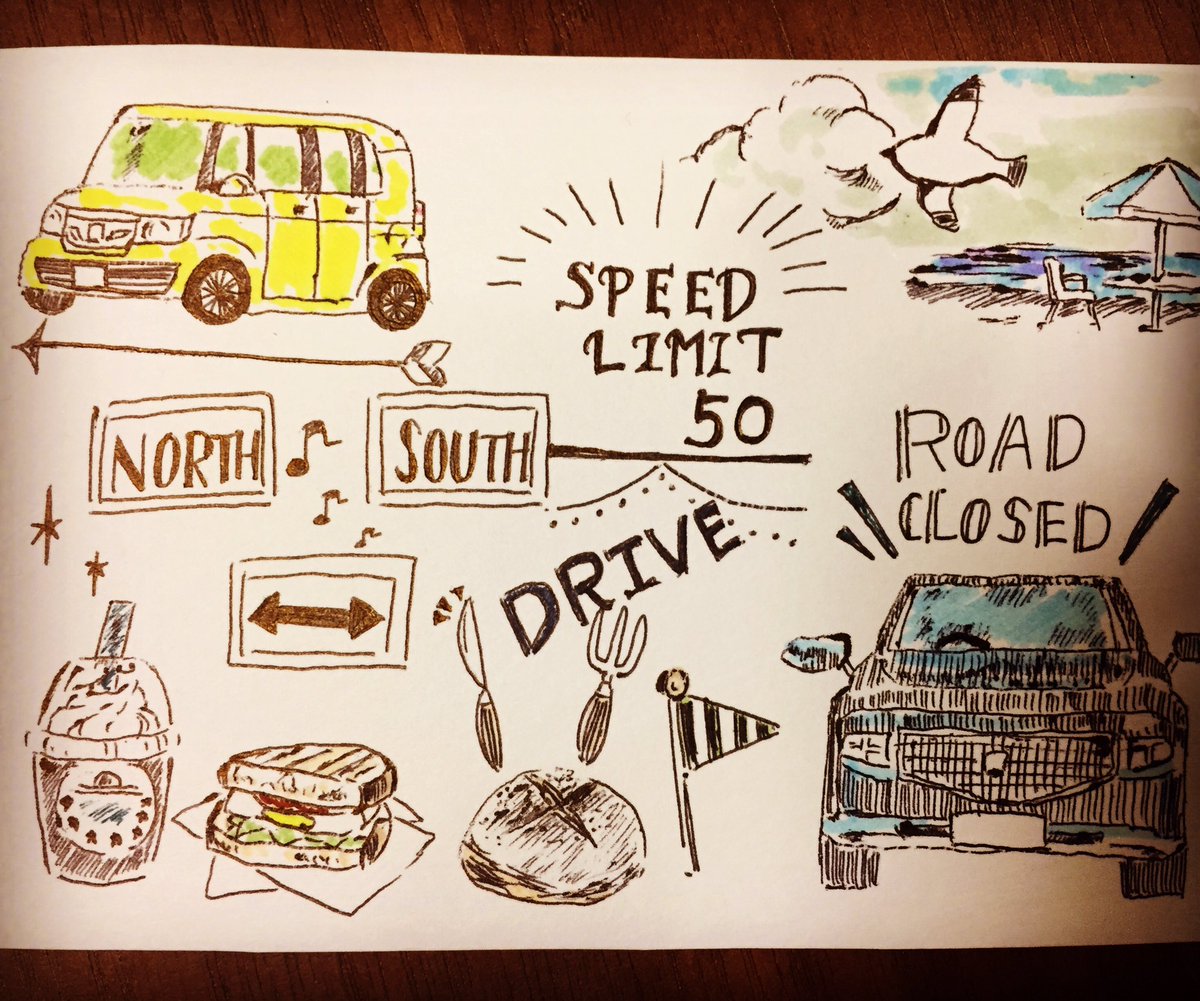 SPEED
LIMIT
50
NORTH
SOUTH
ROAD
CLOSED
DRIVE